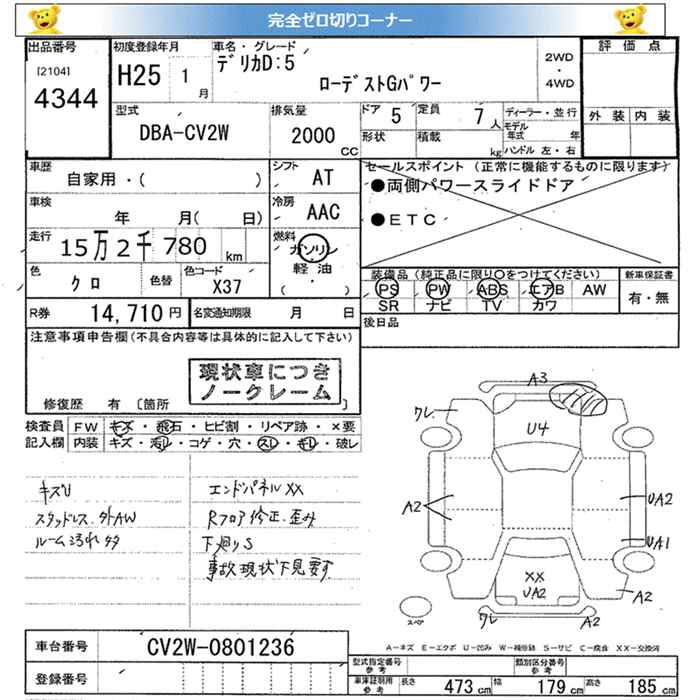 完全ゼロ切りコーナー
出品番号
[2104]
4344
初度登録年月
H25 1 月
車名・グレード
デリカD:5
ローデストGパワー
2WD
・
4WD
評価点
外装 内装
型式
DBA-CV2W
排気量
2000 CC
ドア 5
定員 7 人
形状
積載 kg
ディーラー・並行
モデル年式 年
ハンドル 左・右
車歴
自家用・( )
シフト AT
車検
年 月( 日)
冷房 AAC
走行
15万2千780 km
燃料
ガソリン
軽油
( ・ )
色
クロ
色替
色コード
X37
セールスポイント (正常に機能するものに限ります)
●両側パワースライドドア
●ETC
装備品 (純正品に限り○をつけてください)
PS PW ABS エアB AW
SR ナビ TV カワ
新車保証書
有・無
R券 14,710 円
名変通知期限 月 日
後日品
注意事項申告欄 (不具合内容等は具体的に記入して下さい)
現状車につき
ノークレーム
修復歴 有 [箇所
検査員
記入欄
FW キズ・飛石・ヒビ割・リペア跡・×要
内装 キズ・汚レ・コゲ・穴・スレ・キレ・破レ
キズU
スタッドレス.外AW
ルーム汚れ多
エンドパネルXX
Rフロア修正.歪み
下廻りS
事故現状下見要す
A3
ワレ
U4
A2
UA2
UA1
XX
UA2
A2
ワレ
A2
スペア
A-キズ E-エクボ U-凹み W-補修跡 S-サビ C-腐食 XX-交換済
車台番号
CV2W-0801236
登録番号
型式指定番号
参考
類別区分番号
参考
車庫証明用
参考
長さ 473 cm
幅 179 cm
高さ 185 cm